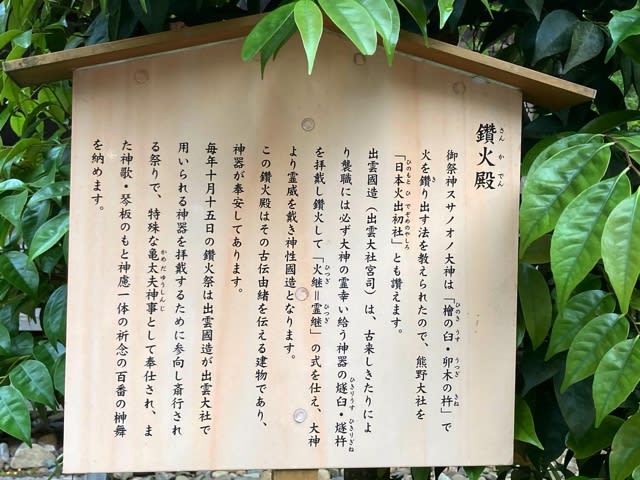 鑽火殿
さんかでん
御祭神スサノオノ大神は「檜の臼・卯木の杵」で
ひのき うす うつぎ きね
火を鑽り出す法を教えられたので、熊野大社を
き
「日本火出初社」とも讃えます。
ひのもと ひ でぞめのやしろ
出雲國造（出雲大社宮司）は、古来しきたりによ
り襲職には必ず大神の霊幸い給う神器の燧臼・燧杵
ひきりうす ひきりぎね
を拝戴し鑽火して「火継＝霊継」の式を仕え、大神
ひつぎ ひつぎ
より霊威を戴き神性國造となります。
この鑽火殿はその古伝由緒を伝える建物であり、
神器が奉安してあります。
毎年十月十五日の鑽火祭は出雲國造が出雲大社で
用いられる神器を拝戴するために参向し斎行され
る祭りで、特殊な亀太夫神事として奉仕され、ま
かめだゆうしんじ
た神歌・琴板のもと神應一体の祈念の百番の神舞
を納めます。